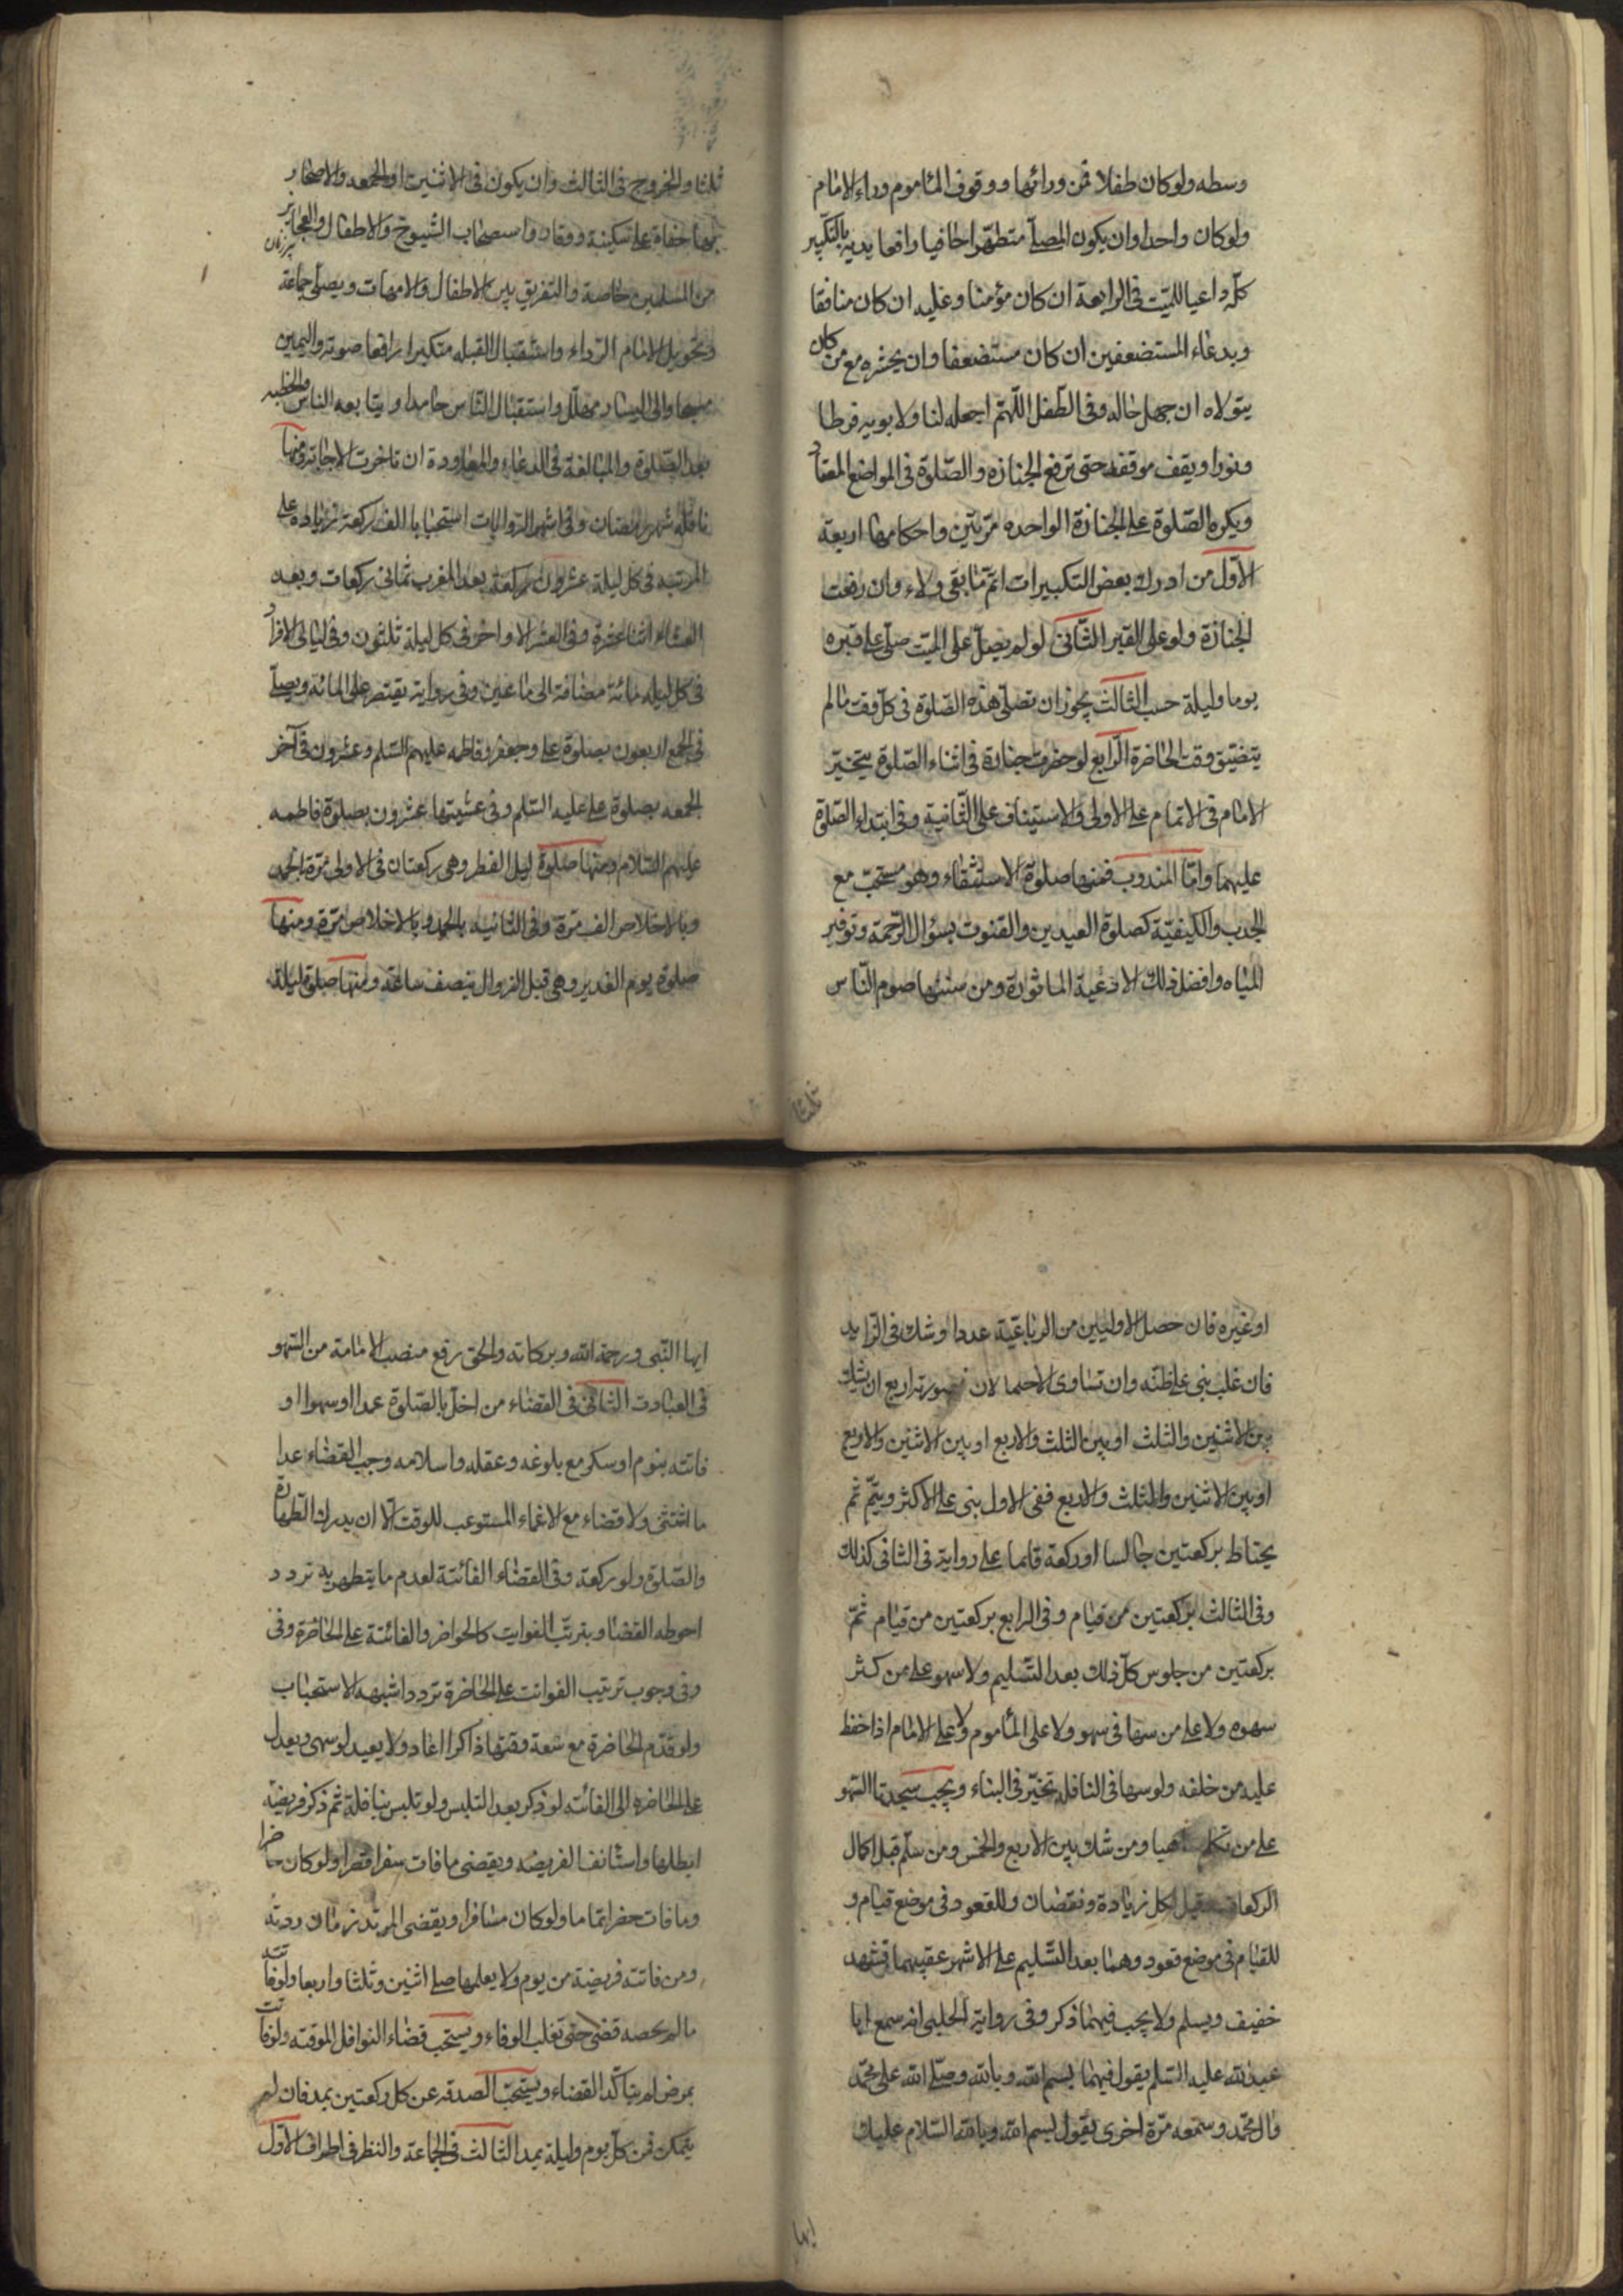 وسطه ولو كان طفلا فمن ورائها ووقوف المأموم وراء الامام
ولو كان واحدا وان يكون المصلّي متطهّرا حافيا رافعا يديه بالتكبير
كلّه داعيا للميّت في الرابعة ان كان مؤمنا وعليه ان كان منافقا
وبدعاء المستضعفين ان كان مستضعفا وان يحشره مع من كان
يتولاه ان جهل حاله وفي الطّفل اللّهمّ اجعله لنا ولابويه فرطا
ونورا ويقف موقفه حتى ترفع الجنازه والصّلوة في المواضع المعتاد
ويكره الصّلوة على الجنازة الواحده مرّتين واحكامها اربعة
الاوّل من ادرك بعض التكبيرات اتمّ ما بقى ولاء وان رفعت
الجنازة ولو على القبر الثّاني لو لم يصلّ على الميّت صلّى على قبره
يوما وليلة حسب الثالث يجوز ان تصلّى هذه الصّلوة في كلّ وقت ما لم
يتضيّق وقت الحاضرة الرّابع لو حضرت جنازة في اثناء الصّلوة يتخيّر
الامام في الاتمام على الاولى والاستيناف على الثّانية وفي ابتداء الصّلوة
عليهما وامّا المندوب فمنها صلوة الاستسقاء وهو مستحبّ مع
الجدب والكيفيّة كصلوة العيدين والقنوت بسؤال الرّحمة وتوفير
المياه وافضل ذلك الادعية الماثورة ومن سننها صوم النّاس
ثلثا
ثلثا والخروج في الثالث وان يكون في الاثنين او الجمعه والاصحار
بها حفاة على سكينة ووقار واستصحاب الشيوخ والاطفال والعجايز
من المسلمين خاصة والتفريق بين الاطفال والامهات ويصلّى جماعة
وتحويل الامام الرّداء واستقبال القبله متكبرا رافعا صوته والى اليمين
مسبحا والى اليسار مهلّل واستقبال النّاس حامدا ويتابعه الناس والخطبه
بعد الصّلوة والمبالغة في الدعاء والمعاودة ان تاخرت الاجابة ومنها
نافلة شهر رمضان وفي اشهر الرّوايات استحبابا الف ركعة زيادة على
المرتبه في كل ليلة عشرون ركعة بعد المغرب ثماني ركعات وبعد
العشاء اثنا عشرة وفي العشر الاواخر في كل ليلة ثلثون وفي ليالى الافراد
في كل ليله مائة مضافة الى ما عين وفي رواية يقتصر على المائه ويصلّى
في الجمع اربعون بصلوة على وجعفر وفاطمه عليهم السّلم وعشرون في آخر
الجمعه بصلوة على عليه السّلم وفي عشيتها عشرون بصلوة فاطمه
عليهم السّلام ومنها صلوة ليل الفطر وهى ركعتان في الاولى مرّة بالحمد
وبالاخلاص الف مرّة وفي الثانيه بالحمد وبالاخلاص مرّة ومنها
صلوة يوم الغدير وهى قبل الزوال بنصف ساعة ومنها صلوة ليلة
او غيره فان حصل الاوليين من الرباعيّة عددا وشك في الزايد
فان غلب بنى على ظنّه وان تساوى الاحتمالان فصورته اربع ان يشك
بين الاثنين والثلث او بين الثلث والاربع او بين الاثنين والاربع
او بين الاثنين والثلث والاربع ففى الاول بنى على الاكثر ويتمّ ثم
يحتاط بركعتين جالسا او ركعة قائما على رواية في الثاني كذلك
وفي الثالث بركعتين من قيام وفي الرابع بركعتين من قيام ثمّ
بركعتين من جلوس كلّ ذلك بعد التّسليم ولا سهو على من كثر
سهوه ولا على من سها في سهو ولا على المأموم ولا على الامام اذا حفظ
عليه من خلفه ولو سها في النافلة تخيّر في البناء ويجب سجدتا السّهو
على من تكلم ساهيا ومن شك بين الاربع والخمس ومن سلّم قبل اكمال
الركعات وقيل لكل زيادة ونقصان وللقعود في موضع قيام و
للقيام في موضع قعود وهما بعد التّسليم على الاشهر عقيبهما تشهد
خفيف ويسلم ولا يجب فيهما ذكر وفي رواية الحلبى انه سمع ابا
عبد الله عليه السّلم يقول فيهما بسم الله وبالله وصلّى الله على محمّد
وال محمّد وسمعه مرّة اخرى يقول بسم الله وبالله السّلام عليك
ايها
ايها النّبى ورحمة الله وبركاته والحق رفع منصب الامامة من السّهو
في العبادت الثاني في القضاء من اخلّ بالصّلوة عمدا او سهوا او
فاتته بنوم او سكر مع بلوغه وعقله واسلامه وجب القضاء عدا
ما استثنى ولا قضاء مع الاغماء المستوعب للوقت الّا ان يدرك الطّهارة
والصّلوة ولو ركعة وفي القضاء الفائتة لعدم ما يتطهر به تردد
احوطه القضا ويترتّب الفوايت كالحواضر والفائتة على الحاضرة وفي
وفي وجوب ترتيب الفوائت على الحاضرة تردد اشبهه الاستحباب
ولو قدّم الحاضرة مع سعة وقتها ذاكرا اعاد ولا يعيد لو سهى ويعدل
على الحاضره الى الفائته لو ذكر بعد التلبس ولو تلبس بنافلة ثم ذكر فريضة
ابطلها واستانف الفريضه ويقضى ما فات سفرا قصرا ولو كان حاضرا
وما فات حضرا تماما ولو كان مسافرا ويقضى المرتد زمان ردته
ومن فاتته فريضة من يوم ولا يعلمها صلى اثنين وثلثا واربعا ولو فاتته
ما لم يحصه قضى حتى تغلب الوفاء ويستحب قضاء النوافل الموقته ولو فاتت
بمرض لم يتاكّد القضاء ويستحبّ الصدقه عن كل ركعتين بمد فان لم
يتمكن فعن كلّ يوم وليلة بمد الثالث في الجماعة والنظر في اطراف الاوّل